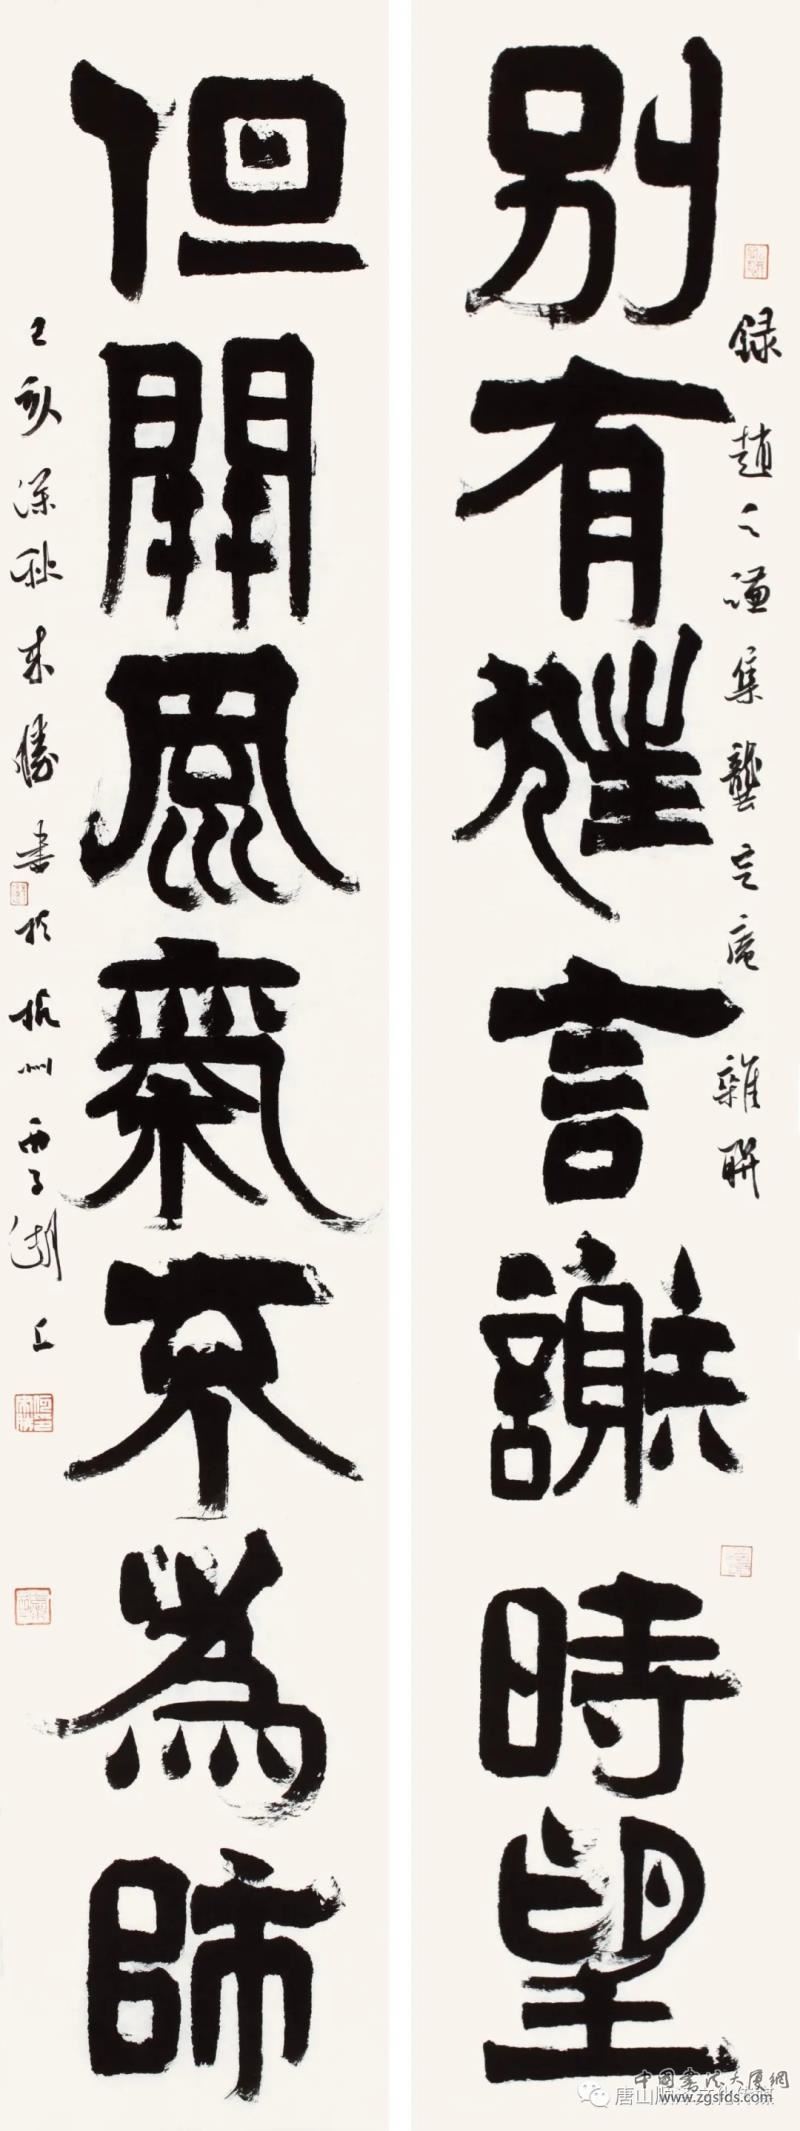 別有狂言謝時望
錄趙之謙集龔定庵
雜聯
但開風氣不為師
己亥深秋來勝書於杭州西子湖上
中國書法大厦網
www.zgsfds.com
唐山